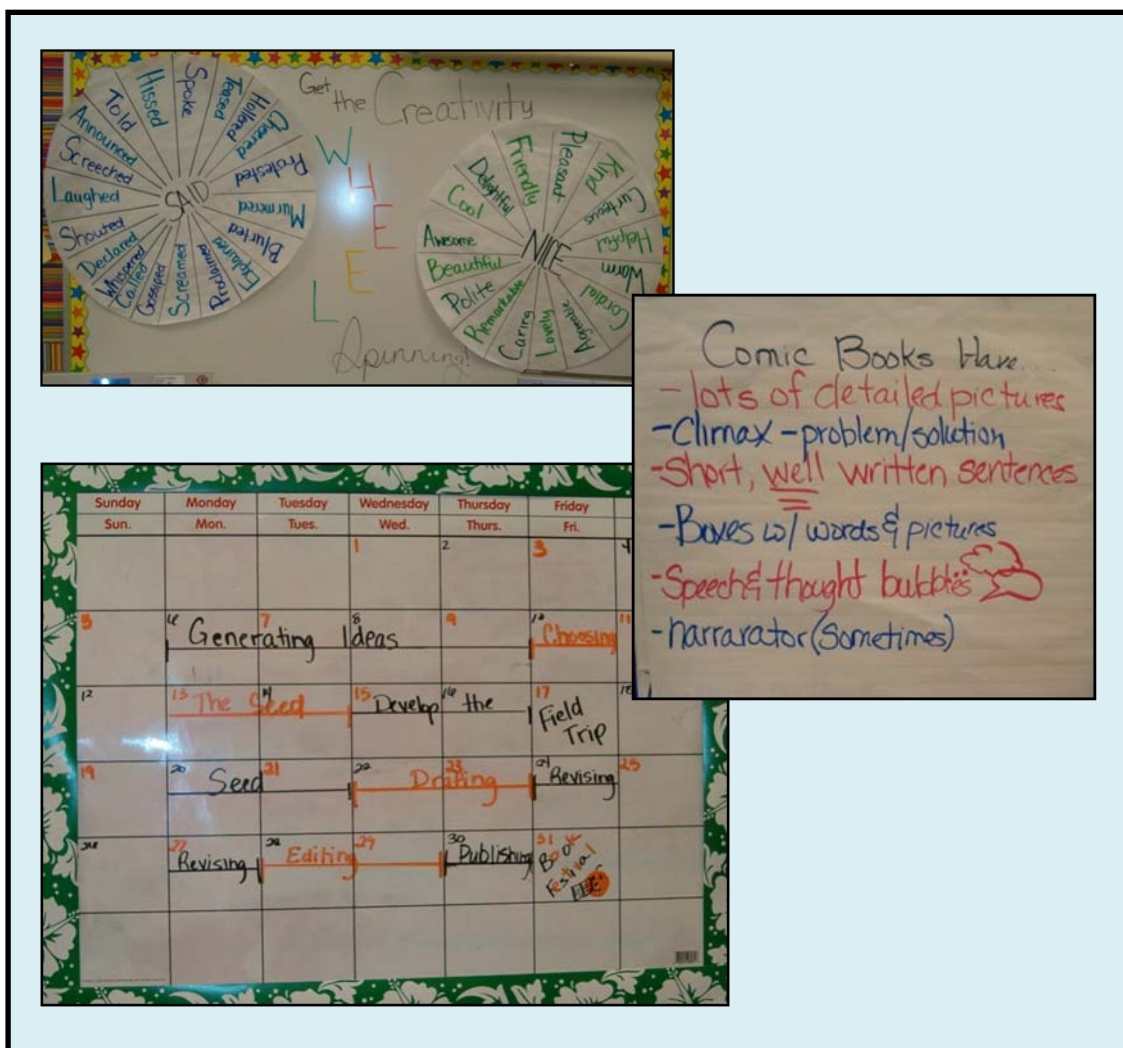 Get the Creativity
WHEEL
Spinning!
SAID
Spoke
Teased
Hollered
Cheered
Protested
Murmered
Blurted
Explained
Proclaimed
Screamed
Gossiped
Called
Whispered
Declared
Shouted
Laughed
Screeched
Announced
Told
Hissed
NICE
Pleasant
Kind
Curteous
Helpful
Warm
Cordial
Lovely
Caring
Remarkable
Polite
Beautiful
Awesome
Cool
Delightful
Friendly
Comic Books Have...
-lots of detailed pictures
-Climax -problem/solution
-Short, well written sentences
-Boxes w/ words & pictures
-Speech & thought bubbles
-narrarator (sometimes)
Sunday Monday Tuesday Wednesday Thursday Friday
Sun. Mon. Tues. Wed. Thurs. Fri.
1 2 3 4
5 6 7 8 9 10 11
Generating Ideas Choosing
12 13 14 15 16 17 18
The Seed Develop the Field Trip
19 20 21 22 23 24 25
Seed Drafting Revising
26 27 28 29 30 31
Revising Editing Publishing Book Festival